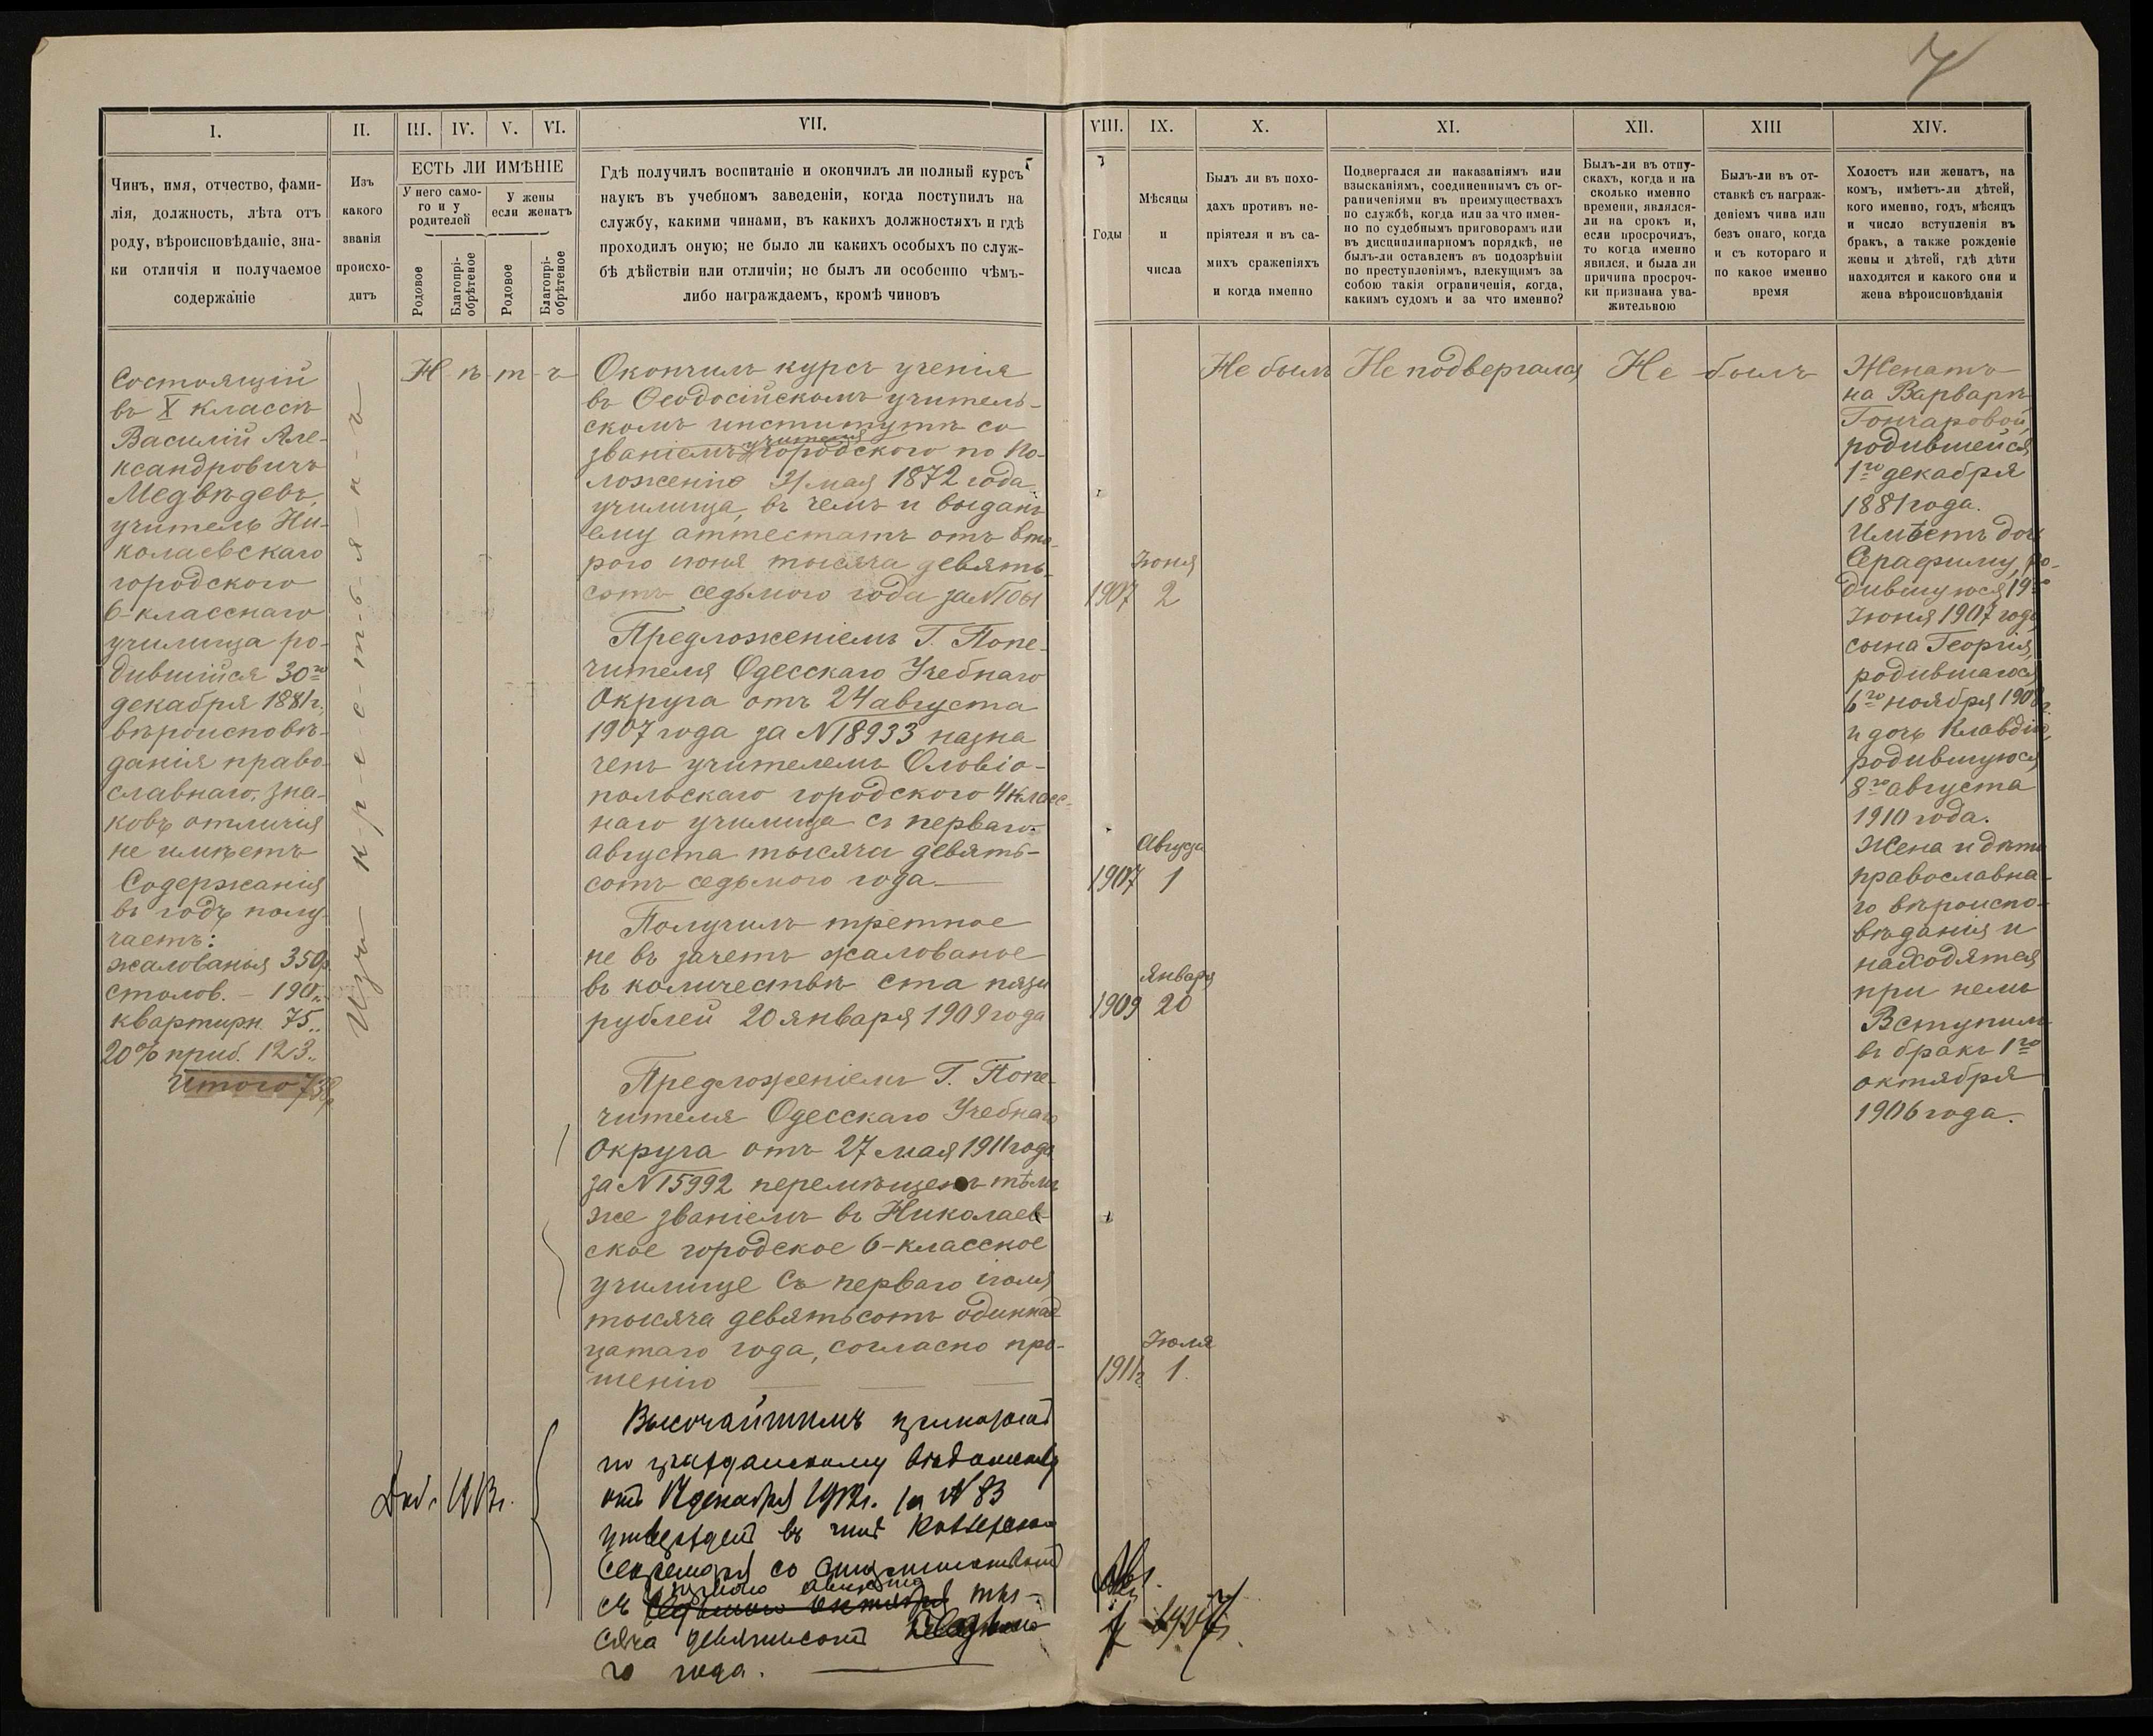 7
I.
II.
III.
IV.
V.
VI.
VII.
VIII.
IX.
X.
XI.
XII.
XIII
XIV.
Чинъ, имя, отчество, фами-
лія, должность, лѣта отъ
роду, вѣроисповѣданіе, зна-
ки отличія и получаемое
содержаніе
Изъ
какого
званія
происхо-
дитъ
ЕСТЬ ЛИ ИМѢНІЕ
У него само-
го и у
родителей
У жены
если женатъ
Родовое
Благопрі-
обрѣтеное
Родовое
Благопрі-
обрѣтеное
Гдѣ получилъ воспитаніе и окончилъ ли полный курсъ
наукъ въ учебномъ заведеніи, когда поступилъ на
службу, какими чинами, въ какихъ должностяхъ и гдѣ
проходилъ оную; не было ли какихъ особыхъ по служ-
бѣ дѣйствіи или отличіи; не былъ ли особенно чѣмъ-
либо награждаемъ, кромѣ чиновъ
Годы
Мѣсяцы
и
числа
Былъ ли въ похо-
дахъ противъ не-
пріятеля и въ са-
михъ сраженіяхъ
и когда именно
Подвергался ли наказаніямъ или
взысканіямъ, соединеннымъ съ ог-
раниченіями въ преимуществахъ
по службѣ, когда или за что имен-
но по судебнымъ приговорамъ или
въ дисциплинарномъ порядкѣ, не
былъ-ли оставленъ въ подозрѣніи
по преступленіямъ, влекущимъ за
собою такія ограниченія, когда,
какимъ судомъ и за что именно?
Былъ-ли въ отпу-
скахъ, когда и на
сколько именно
времени, являлся-
ли на срокъ и,
если просрочилъ,
то когда именно
явился, и была ли
причина просроч-
ки признана ува-
жительною
Былъ-ли въ от-
ставкѣ съ награж-
деніемъ чина или
безъ онаго, когда
и съ котораго и
по какое именно
время
Холостъ или женатъ, на
комъ, имѣетъ-ли дѣтей,
кого именно, годъ, мѣсяцъ
и число вступленія въ
бракъ, а также рожденіе
жены и дѣтей, гдѣ дѣти
находятся и какого они и
жена вѣроисповѣданія
Состоящій
въ X классѣ
Василій Але-
ксандровичъ
Медвѣдевъ,
учитель Ни-
колаевскаго
городского
6-класснаго
училища ро-
дившійся 30го
декабря 1881г.,
вѣроисповѣ-
данія право-
славнаго, зна-
ковъ отличія
не имѣетъ
Содержанія
въ годъ полу-
чаетъ:
жалованья 350р.
столов. - 190 "
квартирн. 75 "
20% приб. 123 "
Итого 738р
Изъ к-р-е-с-т-ь-я-н-ъ
Н-ѣ-т-ъ
Окончилъ курсъ ученія
въ Ѳеодосійскомъ учитель-
скомъ институтѣ со
званіемъ учителя городского по По-
ложенію 31 мая 1872 года
училища, въ чемъ и выданъ
ему аттестатъ отъ вто-
рого июня тысяча девять-
сотъ седьмого года за №
Предложеніемъ Г. Попе-
чителя Одесскаго Учебнаго
Округа отъ 24 августа
1907 года за № 18933 назна
ченъ учителемъ Ольвіо-
польскаго городского 4 класс-
наго училища съ перваго
августа тысяча девять-
сотъ седьмого года.
Получилъ третное
не въ зачетъ жалованье
въ количествѣ ста пяти
рублей 20 января 1909 года
Предложеніемъ Г. Попе-
чителя Одесскаго Учебнаго
Округа отъ 27 мая 1911 года
за № 15992 перемѣщенъ тѣмъ
же званіемъ въ Николаев-
ское городское 6-классное
училище съ перваго іюля
тысяча девятьсотъ одиннад-
цатаго года, согласно про-
шенію
Высочайшимъ приказомъ
по гражданскому вѣдомству
отъ декабря 1912г. за № 83
утвержденъ въ чинѣ Коллежскаго
Секретаря со старшинствомъ
съ перваго августа тыс-
сяча девятьсотъ седьма-
го года.
1907 Іюня 2
1907 Августа 1
1909 Января 20
1911г. Іюля 1.
Авг.
1 1907г.
Не былъ
Не подвергался
Не былъ
Женатъ
на Варварѣ
Гончаровой,
родившейся
1го декабря
1881 года.
Имѣетъ дочь
Серафиму, ро-
дившуюся 19го
Іюня 1907 года,
сына Георгія,
родившагося
6го ноября 1908г.
и дочь Клавдію,
родившуюся
8го августа
1910 года.
Жена и дѣти
православна-
го вѣроиспо-
вѣданія и
находятся
при немъ
Вступилъ
въ бракъ 1го
октября
1906 года.